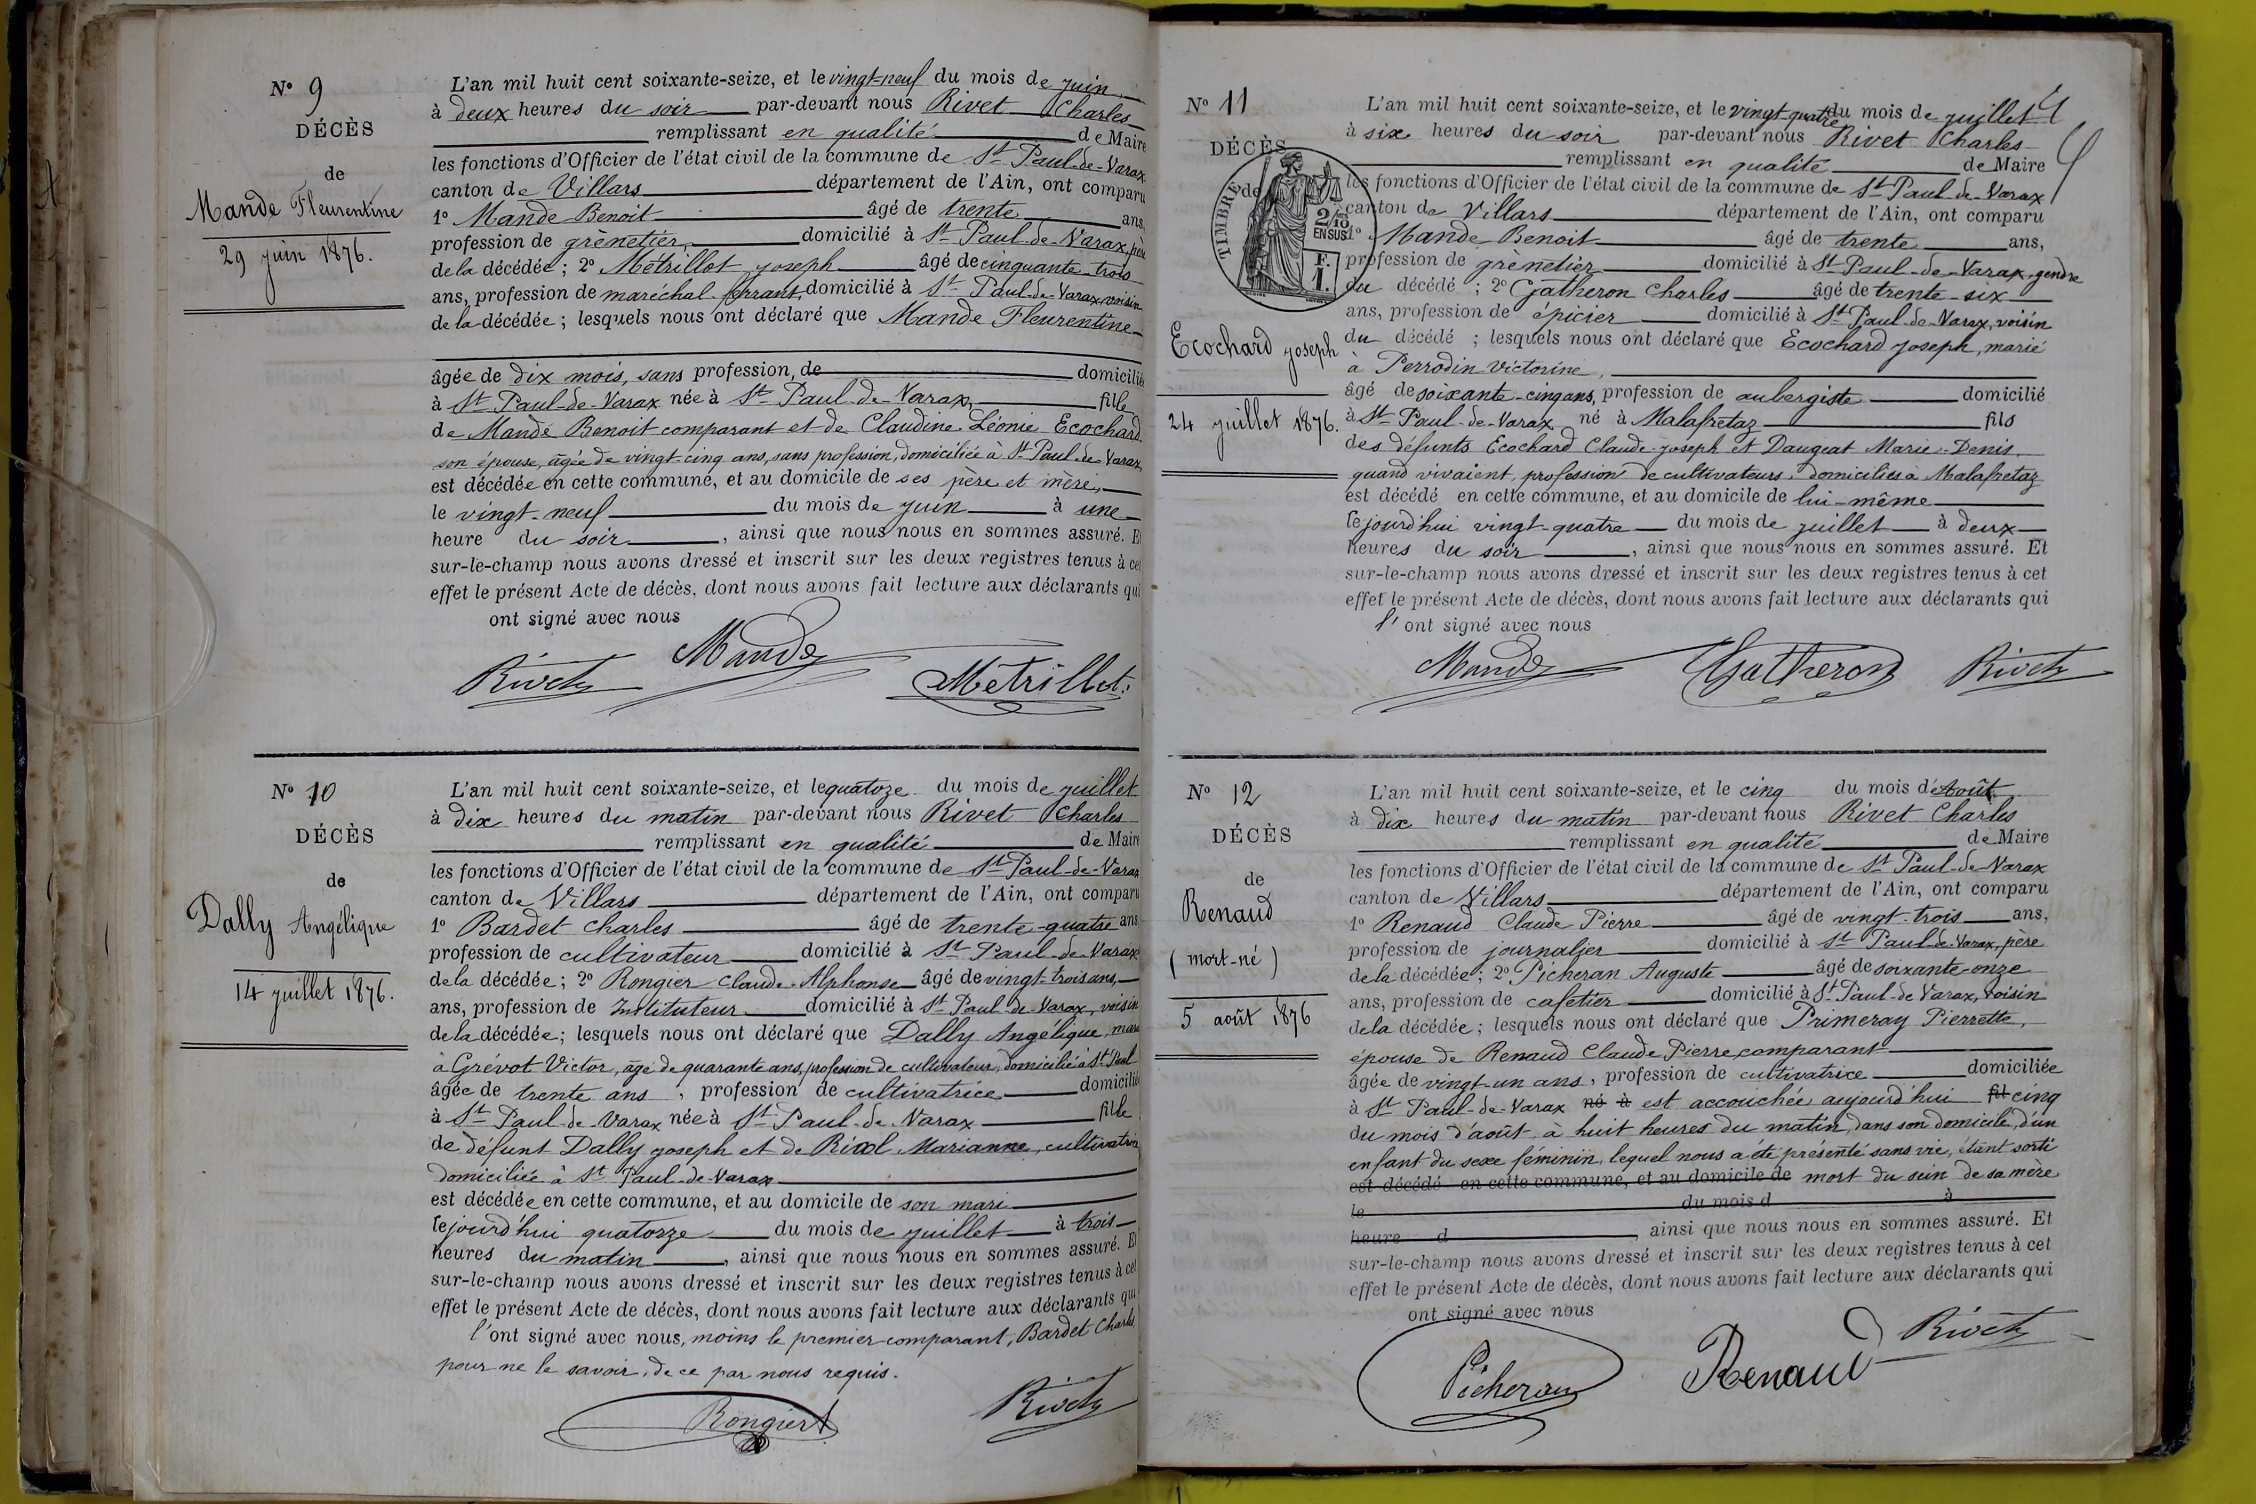 N° 9
DÉCÈS
de
Mande Fleurentine
29 juin 1876.
L'an mil huit cent soixante-seize, et le vingt-neuf du mois de juin
à deux heures du soir par-devant nous Rivet Charles
remplissant en qualité de Maire
les fonctions d'Officier de l'état civil de la commune de St Paul-de-Varax
canton de Villars département de l'Ain, ont comparu
1° Mande Benoit âgé de trente ans,
profession de grènetier domicilié à St Paul-de-Varax, père
de la décédée; 2° Métrillot joseph âgé de cinquante-trois
ans, profession de maréchal-ferrant, domicilié à St Paul-de-Varax, voisin
de la décédée; lesquels nous ont déclaré que Mande Fleurentine
âgée de dix mois, sans profession, de domiciliée
à St Paul-de-Varax née à St Paul-de-Varax, fille
de Mande Benoit comparant et de Claudine Léonie Ecochard
son épouse, âgée de vingt-cinq ans, sans profession, domiciliée à St Paul-de-Varax,
est décédée en cette commune, et au domicile de ses père et mère,
le vingt-neuf du mois de juin à une
heure du soir, ainsi que nous nous en sommes assuré. Et
sur-le-champ nous avons dressé et inscrit sur les deux registres tenus à cet
effet le présent Acte de décès, dont nous avons fait lecture aux déclarants qui
ont signé avec nous
Rivet Mande Métrillot
N° 10
DÉCÈS
de
Dally Angélique
14 juillet 1876.
L'an mil huit cent soixante-seize, et le quatoze du mois de juillet
à dix heures du matin par-devant nous Rivet Charles
remplissant en qualité de Maire
les fonctions d'Officier de l'état civil de la commune de St Paul-de-Varax
canton de Villars département de l'Ain, ont comparu
1° Bardet Charles âgé de trente-quatre ans
profession de cultivateur domicilié à St Paul-de-Varax
de la décédée; 2° Rongier Claude-Alphonse âgé de vingt-trois ans,
ans, profession de Instituteur domicilié à St Paul-de-Varax, voisin
de la décédée; lesquels nous ont déclaré que Dally Angélique, mari
à Grévot Victor, âgé de quarante ans, profession de cultivateur, domicilié à St Paul
âgée de trente ans, profession de cultivatrice domiciliée
à St Paul-de-Varax née à St Paul-de-Varax fille
de défunt Dally joseph et de Marianne, cultivatrice
domiciliée à St Paul-de-Varax
est décédée en cette commune, et au domicile de son mari
le jourd'hui quatorze du mois de juillet à trois
heures du matin, ainsi que nous nous en sommes assuré. Et
sur-le-champ nous avons dressé et inscrit sur les deux registres tenus à cet
effet le présent Acte de décès, dont nous avons fait lecture aux déclarants qui
l'ont signé avec nous, moins le premier comparant, Bardet Charles
pour ne le savoir, de ce par nous requis.
Rongier Rivet
N° 11
DÉCÈS
de
TIMBRE
2/10 EN SUS
F. 1.
Ecochard joseph
24 juillet 1876.
L'an mil huit cent soixante-seize, et le vingt-quatre du mois de juillet
à six heures du soir par-devant nous Rivet Charles
remplissant en qualité de Maire
les fonctions d'Officier de l'état civil de la commune de St Paul-de-Varax
canton de Villars département de l'Ain, ont comparu
1° Mande Benoit âgé de trente ans,
profession de grènetier domicilié à St Paul-de-Varax, gendre
du décédé; 2° Gatheron Charles âgé de trente-six
ans, profession de épicier domicilié à St Paul-de-Varax, voisin
du décédé; lesquels nous ont déclaré que Ecochard joseph, marié
à Perrodin Victorine,
âgé de soixante-cinq ans, profession de aubergiste domicilié
à St Paul-de-Varax né à Malafretaz fils
des défunts Ecochard Claude-joseph et Daugeat Marie-Denis,
quand vivaient, profession de cultivateurs, domiciliés à Malafretaz
est décédé en cette commune, et au domicile de lui-même
le jourd'hui vingt-quatre du mois de juillet à deux
heures du soir, ainsi que nous nous en sommes assuré. Et
sur-le-champ nous avons dressé et inscrit sur les deux registres tenus à cet
effet le présent Acte de décès, dont nous avons fait lecture aux déclarants qui
l'ont signé avec nous
Mande Gatheron Rivet
N° 12
DÉCÈS
de
Renaud
(mort-né)
5 août 1876
L'an mil huit cent soixante-seize, et le cinq du mois d'Août
à dix heures du matin par-devant nous Rivet Charles
remplissant en qualité de Maire
les fonctions d'Officier de l'état civil de la commune de St Paul-de-Varax
canton de Villars département de l'Ain, ont comparu
1° Renaud Claude Pierre âgé de vingt-trois ans,
profession de journalier domicilié à St Paul-de-Varax, père
de la décédée; 2° Picheran Auguste âgé de soixante-onze
ans, profession de cafetier domicilié à St Paul-de Varax, voisin
de la décédée; lesquels nous ont déclaré que Primeray Pierrette,
épouse de Renaud Claude Pierre comparant
âgée de vingt-un ans, profession de cultivatrice domiciliée
à St Paul-de-Varax né à est accouchée aujourd'hui fil cinq
du mois d'août à huit heures du matin, dans son domicile, d'un
enfant du sexe féminin, lequel nous a été présenté sans vie, étant sorti
est décédé en cette commune, et au domicile de mort du sein de sa mère
le du mois d à
heure d, ainsi que nous nous en sommes assuré. Et
sur-le-champ nous avons dressé et inscrit sur les deux registres tenus à cet
effet le présent Acte de décès, dont nous avons fait lecture aux déclarants qui
ont signé avec nous
Picheran Renaud Rivet